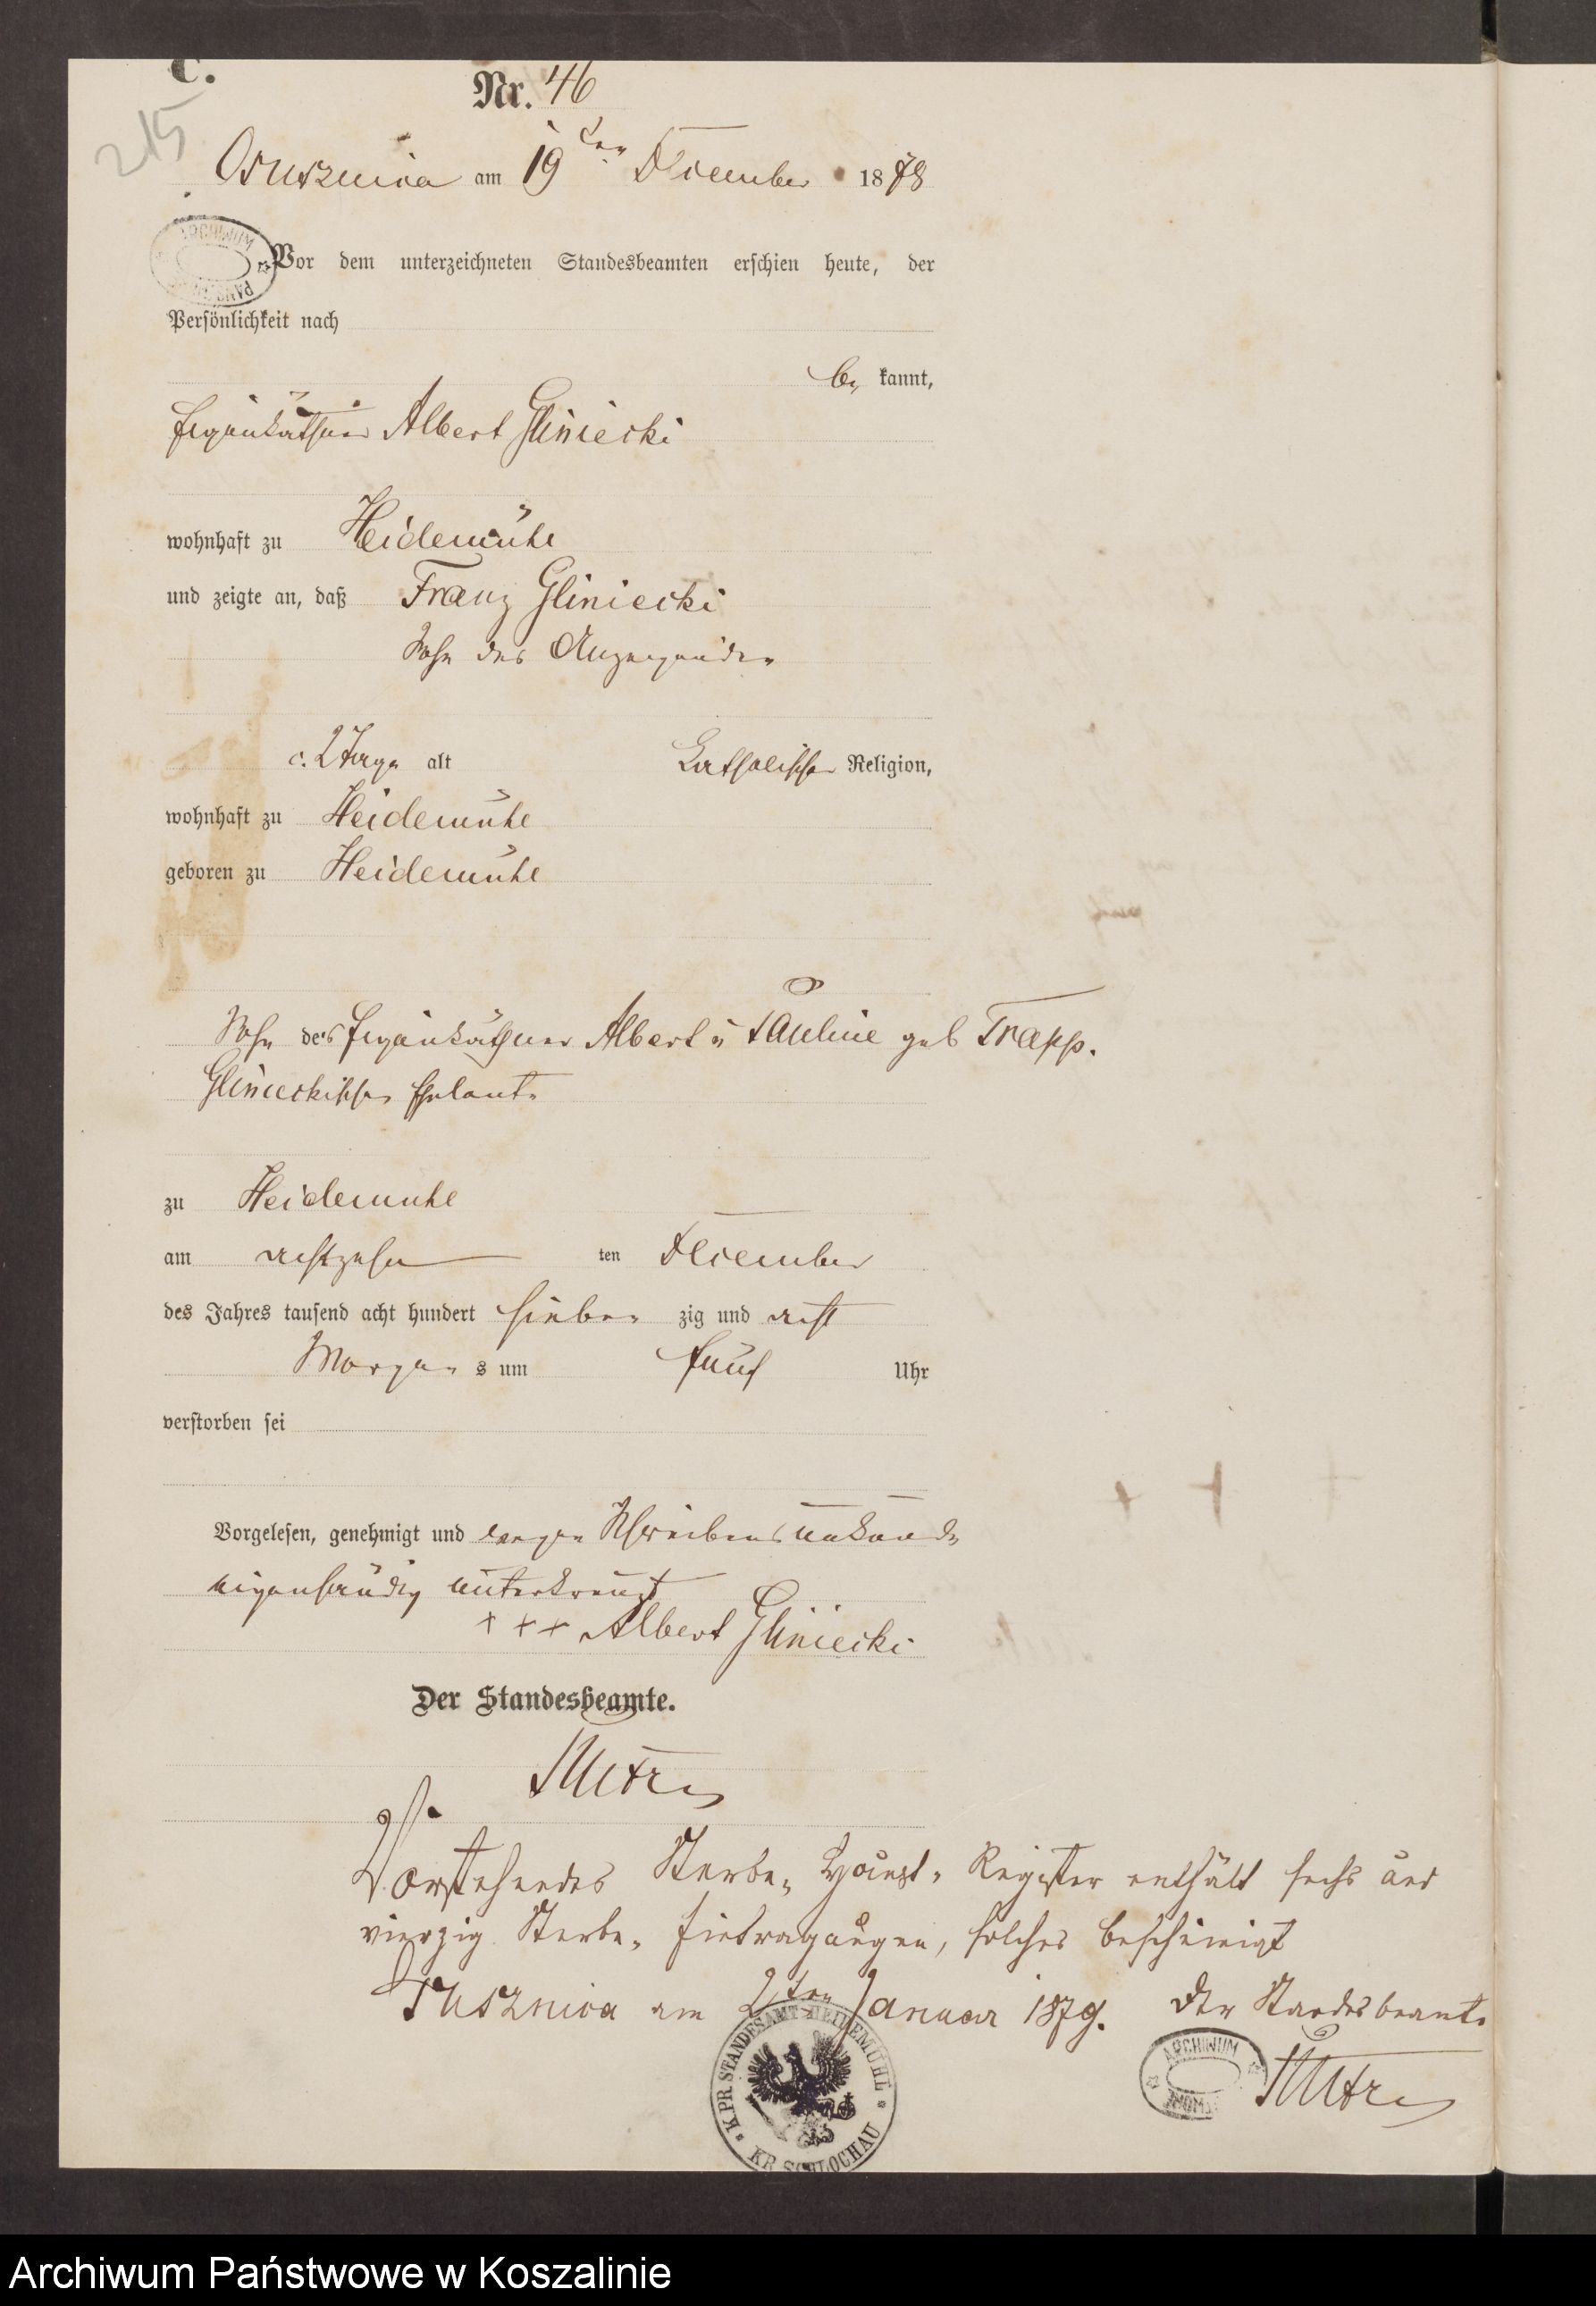 C.
Nr. 46
215
Osusznica am 19ten December 1878
ARCHIWUM
Vor dem unterzeichneten Standesbeamten erschien heute, der
Persönlichkeit nach
be kannt,
Eigenkäthner Albert Gliniecki
wohnhaft zu Heidemühl
und zeigte an, daß Franz Gliniecki
Sohn des Anzeigenden
c. 2 Tage alt Katholischer Religion,
wohnhaft zu Heidemühl
geboren zu Heidemühl
Sohn des Eigenkäthner Albert u Pauline geb Trapp.
Glinieckischen Eheleute
zu Heidemühl
am achtzehn ten December
des Jahres tausend acht hundert sieben zig und acht
Morgen s um fünf Uhr
verstorben sei
Vorgelesen, genehmigt und wegen Schreibensunkunde
eigenhändig unterkreuzt
+++ Albert Gliniecki
Der Standesbeamte.
Vorstehendes Sterbe-Haupt-Register enthält sechs und
vierzig Sterbe-Eintragungen, solches bescheinigt
Osusznica am 2ten Januar 1879. Der Standesbeamte
K.PR. STANDESAMT HEIDEMÜHL * KR. SCHLOCHAU *
ARCHIWUM
Archiwum Państwowe w Koszalinie